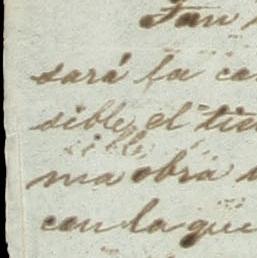 Tan
sará la ca
sible, el tie
ma obra
con la que